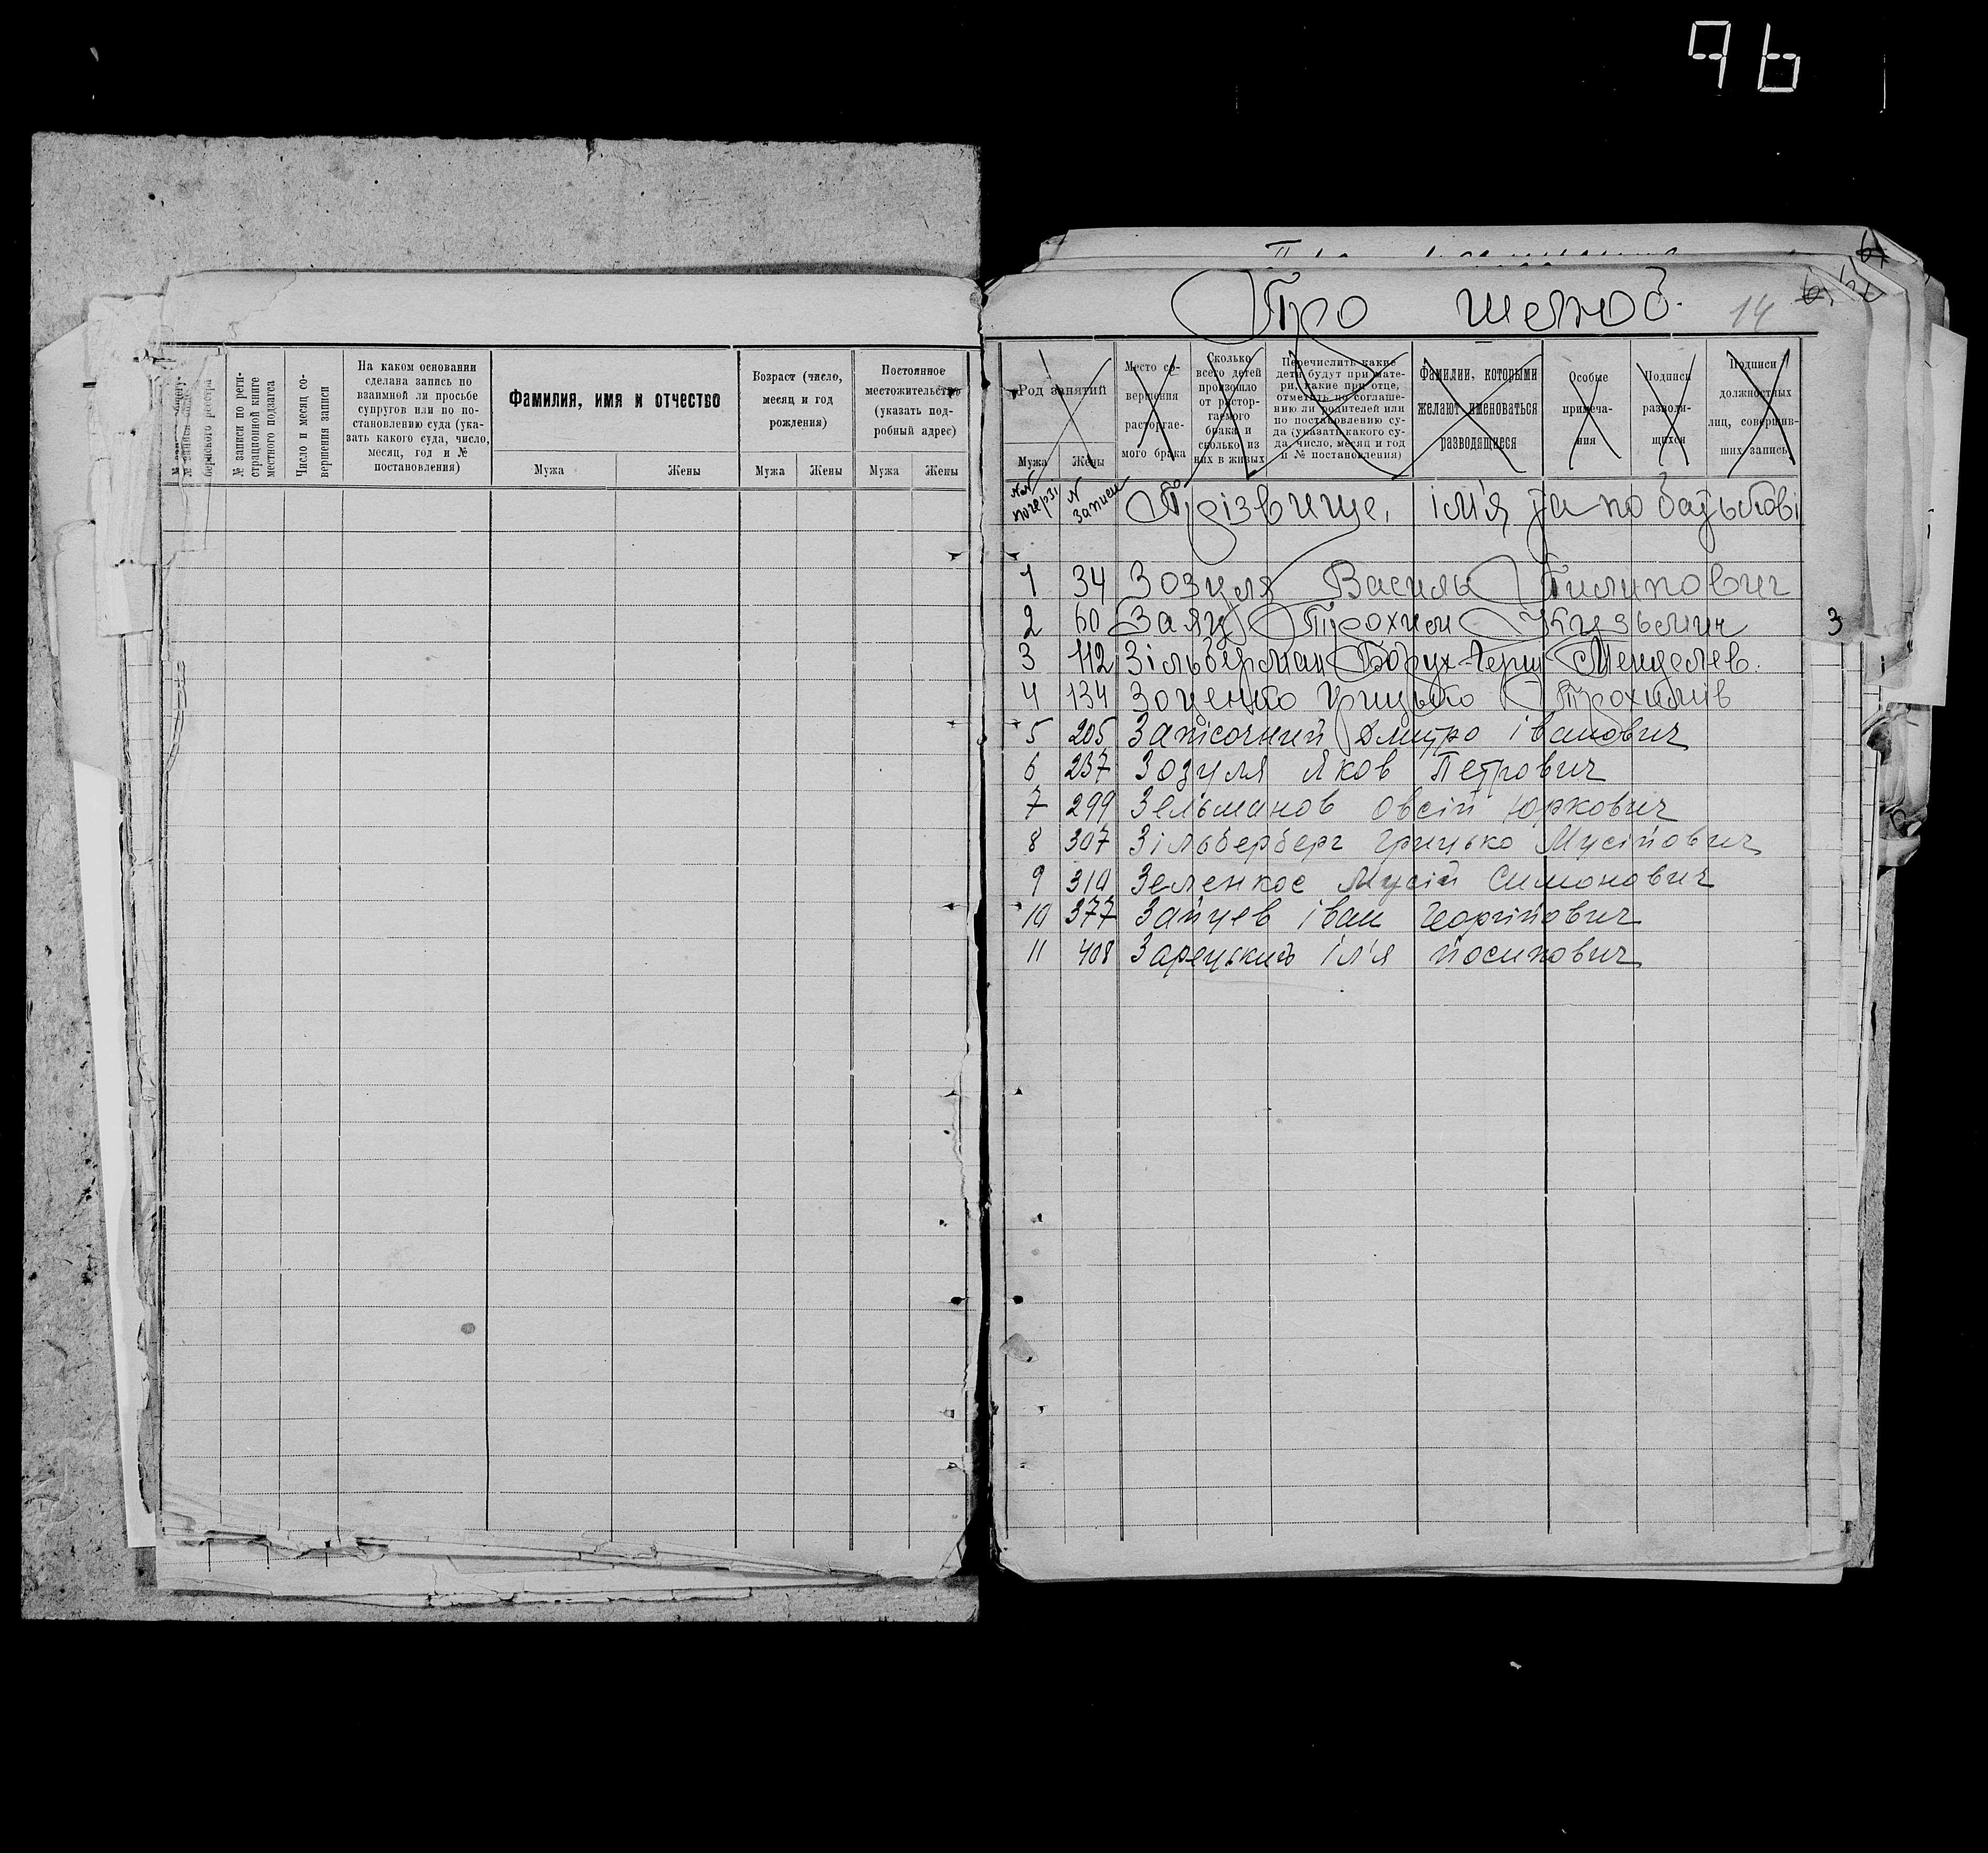 96
Про шлюб.
14
№ записи по реги-
страционной книге
местного подзагса
Число и месяц со-
вершения записи
На каком основании
сделана запись по
взаимной ли просьбе
супругов или по по-
становлению суда (ука-
зать какого суда, число,
месяц, год и №
постановления)
Фамилия, имя и отчество
Мужа
Жены
Возраст (число,
месяц и год
рождения)
Мужа
Жены
Постоянное
местожительство
(указать под-
робный адрес)
Мужа
Жены
Род занятий
Мужа
Жены
Место со-
вершения
расторгае-
мого брака
Сколько
всего детей
произошло
от растор-
гаемого
брака и
сколько из
них в живых
Перечислить какие
дети будут при мате-
ри, какие при отце,
отметить по соглаше-
нию ли родителей или
по постановлению су-
да (указать какого су-
да, число, месяц и год
и № постановления)
Фамилии, которыми
желают именоваться
разводящиеся
Особые
примеча-
ния
Подписи
разводя-
щихся
Подписи
должностных
лиц, совершив-
ших запись
№№ почерзі
№ записи
Прізвище, ім'я та по батькові
1 34 Зозуля Василь Пилипович
2 60 Заяц Трохим Кузьмич
3 112 Зільберман Борух-Герш Менделев.
4 134 Зоценко Грицько Трохимів
5 205 Затісочний Дмитро Іванович
6 237 Зозуля Яков Петрович
7 299 Зельманов Овсій Юркович
8 307 Зільберберг Грицько Мусійович
9 310 Зеленкос Мусій Симонович
10 377 Зайцев Іван Георгійович
11 408 Зарецький Ілʼя Йосипович
З